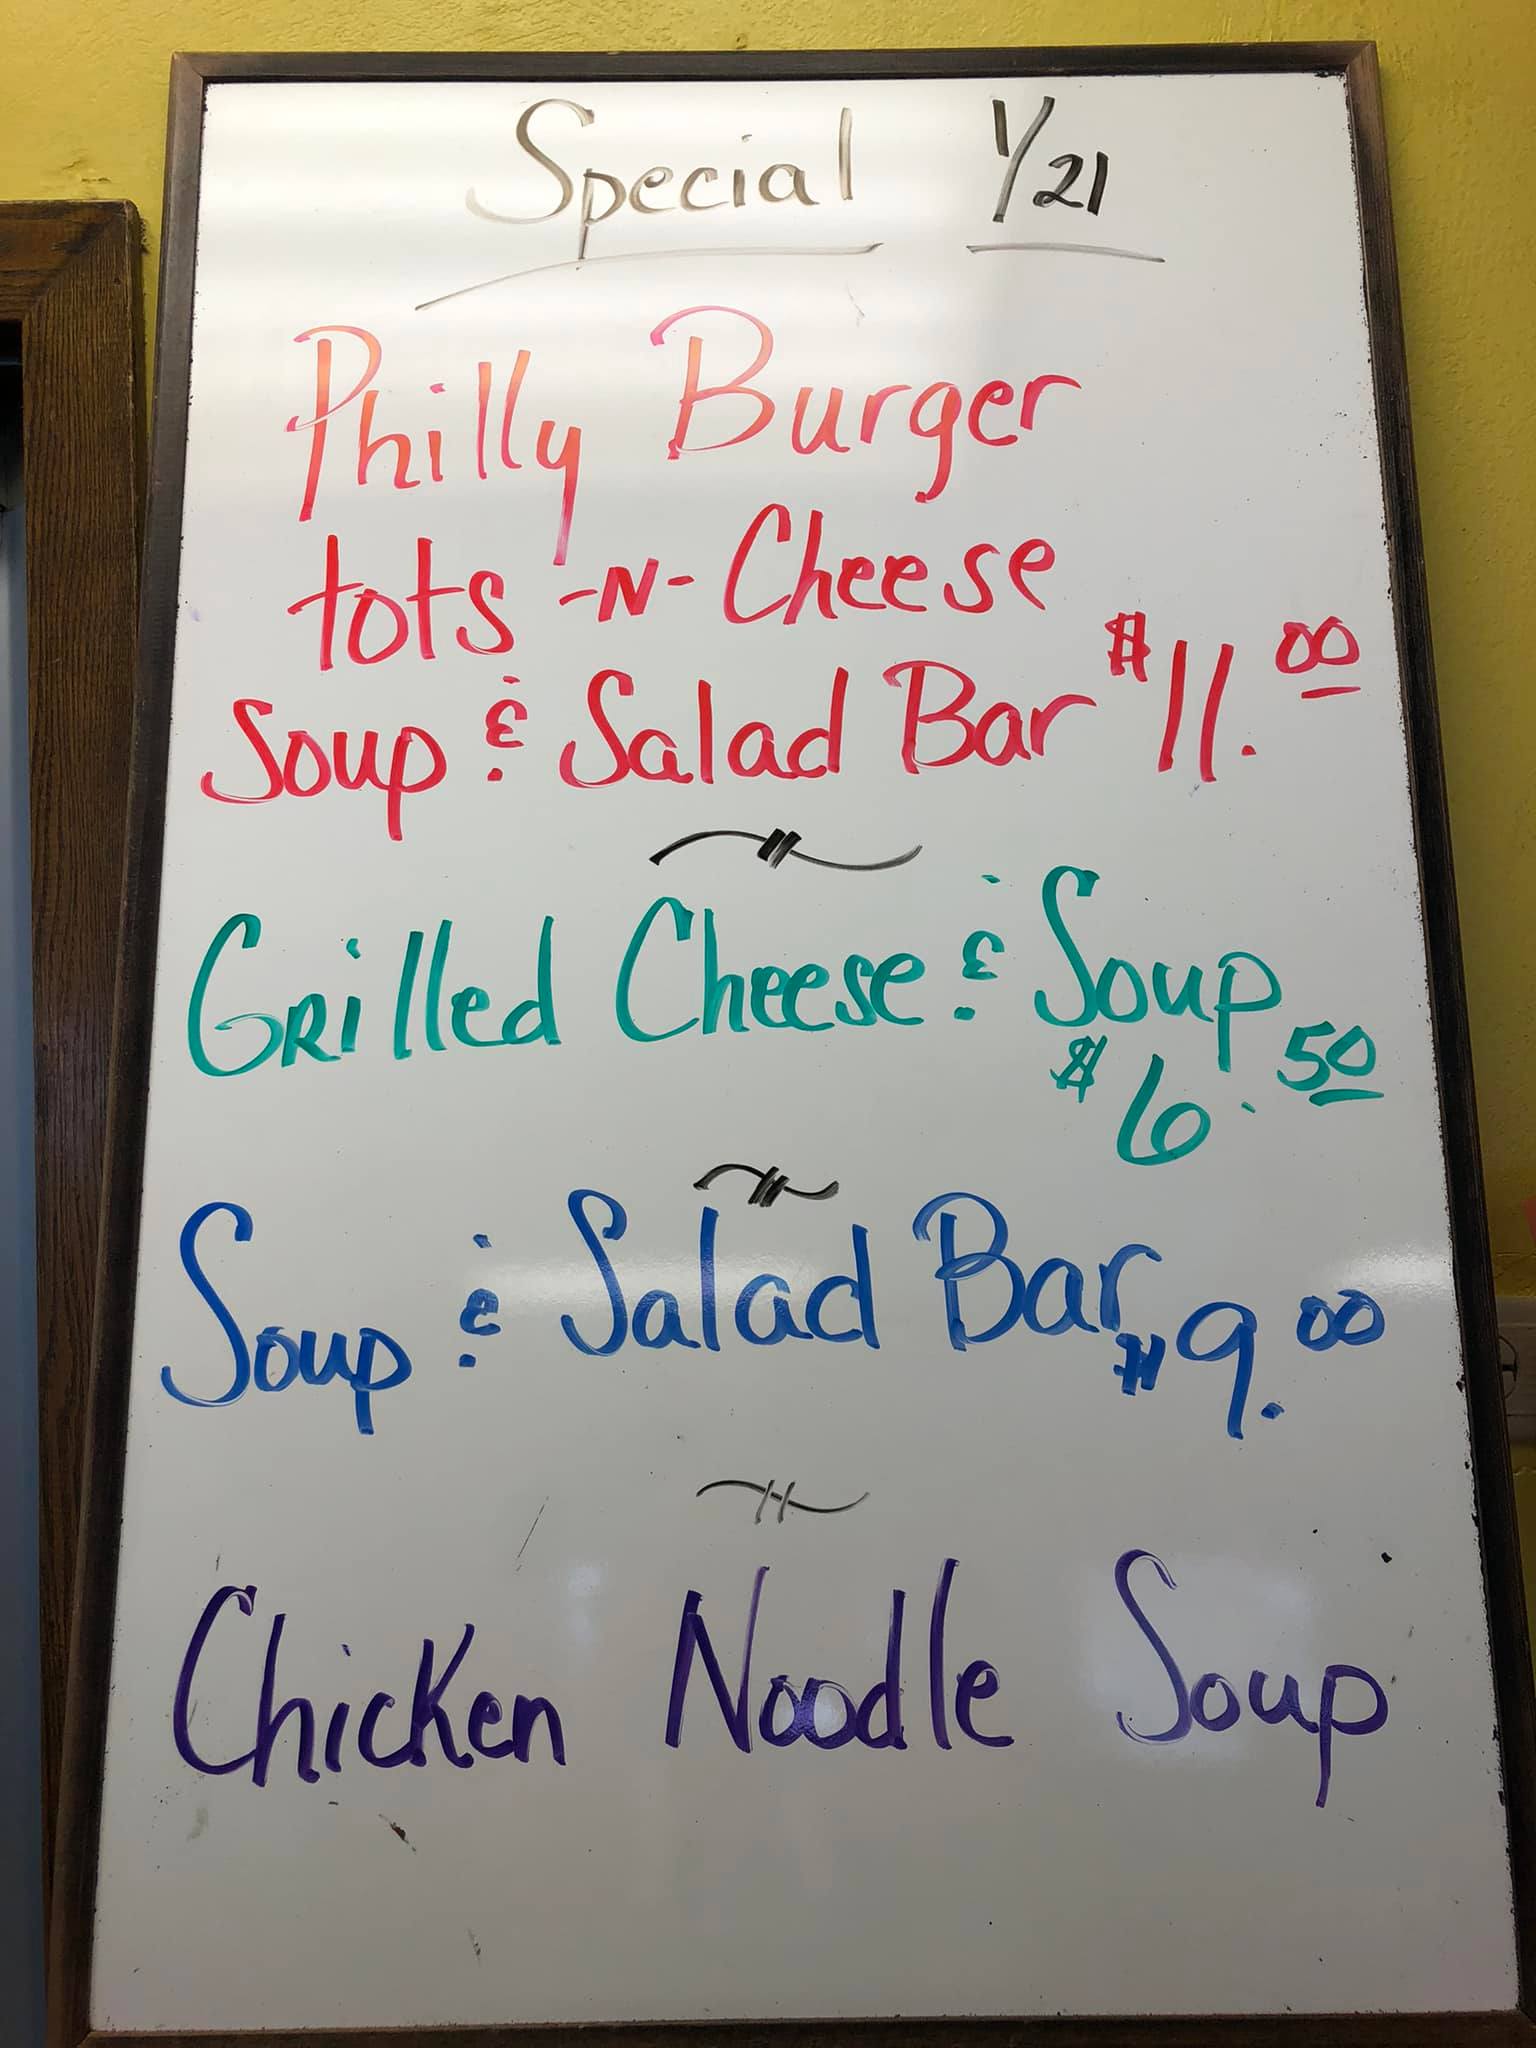 Special 1/21
Philly Burger
tots -N- Cheese
Soup & Salad Bar $11.00
Grilled Cheese & Soup
$6.50
Soup & Salad Bar $9.00
Chicken Noodle Soup